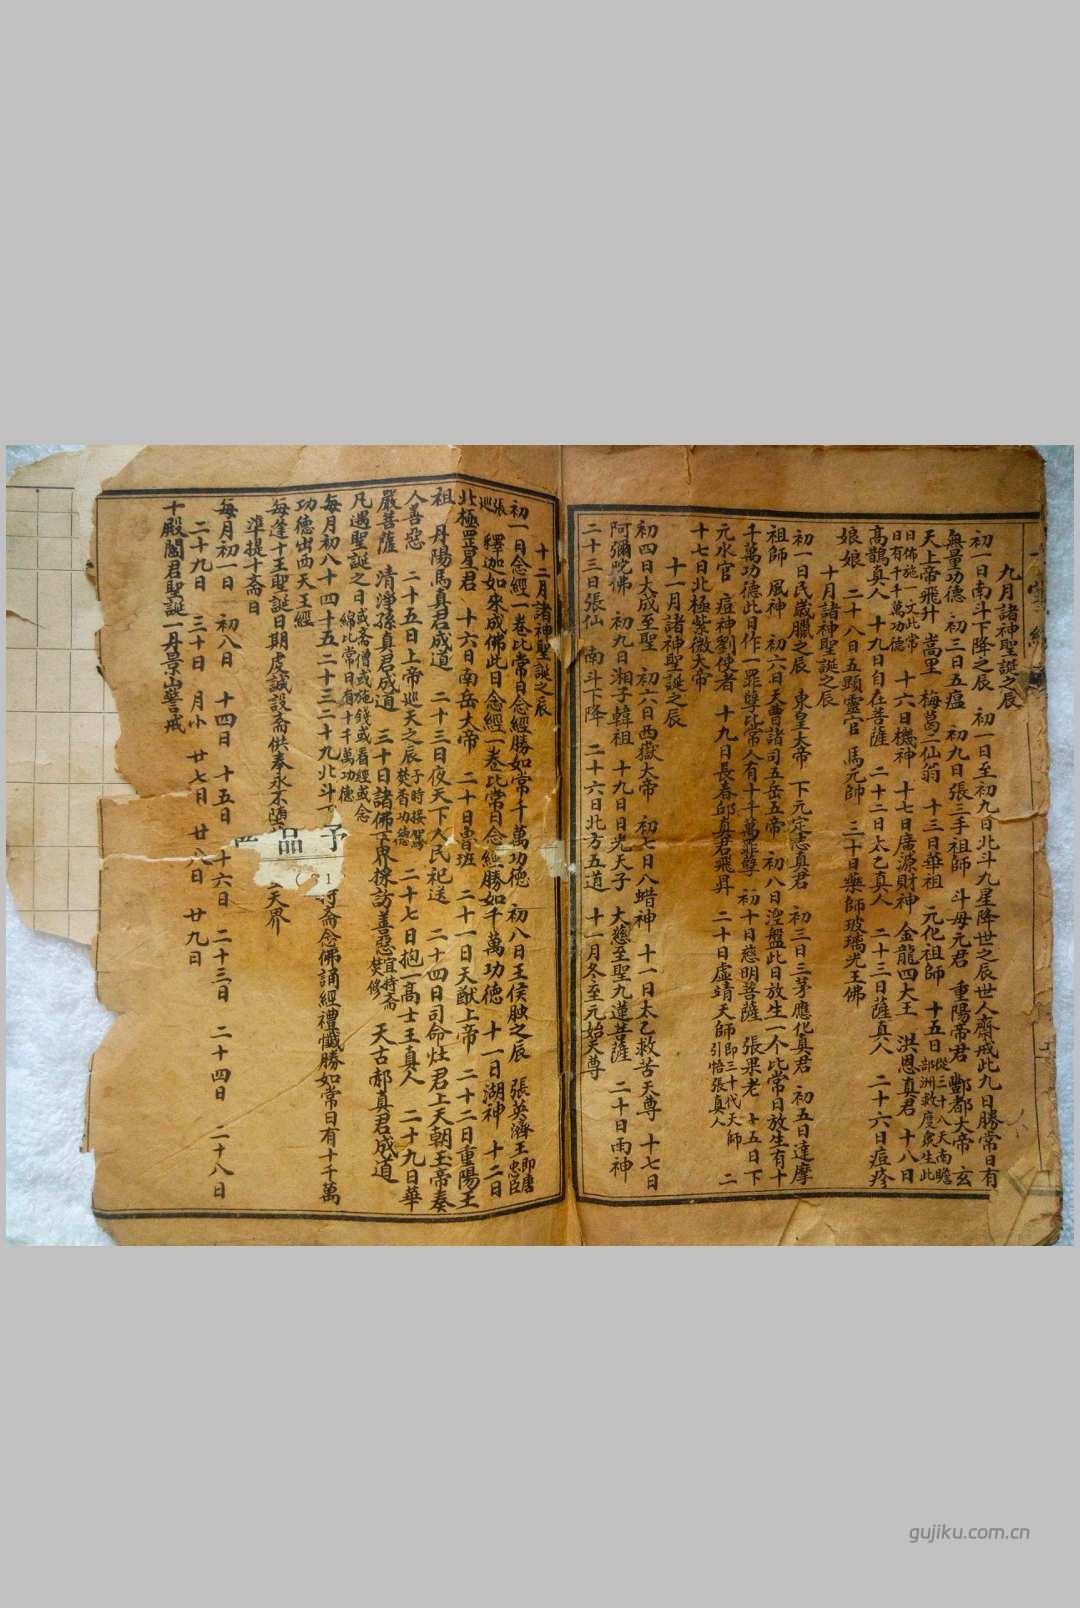 九月諸神聖誕之辰
初一日南斗下降之辰 初一日至初九日北斗九星降世之辰世人齋戒此九日勝常日有
無量功德 初三日五瘟 初九日張三手祖師 斗母元君 重陽帝君 酆都大帝 玄
天上帝飛升 嵩里 梅葛二仙翁 十三日華祖 元化祖師 十五日從三十八天南瞻部洲救度衆生此
日佛施一文比常日有千千萬功德 十六日機神 十七日廣源財神 金龍四大王 洪恩真君 十八日
高鵲真人 十九日自在菩薩 二十二日太乙真人 二十三日薩真人 二十六日痘疹
娘娘 二十八日五顯靈官 馬元帥 三十日藥師玻璃光王佛
十月諸神聖誕之辰
初一日民歲臘之辰 東皇大帝 下元定志真君 初三日三茅應化真君 初五日達摩
祖師 風神 初六日天曹諸司五岳五帝 初八日涅盤此日放生一个比常日放生有十
千萬功德此日作一罪孽比常人有十千萬罪孽 初十日慈明菩薩 張果老 十五日下
元水官 痘神劉使者 十九日長春邱真君飛昇 二十日虛靖天師即三十代天師引悟張真人 二
十七日北極紫微大帝
十一月諸神聖誕之辰
初四日大成至聖 初六日西嶽大帝 初七日八蜡神 十一日太乙救苦天尊 十七日
阿彌陀佛 初九日湘子韓祖 十九日日光天子 大慈至聖九蓮菩薩 二十日雨神
二十三日張仙 南斗下降 二十六日北方五道 十一月冬至元始天尊
十二月諸神聖誕之辰
初一日念經一卷比常日念經勝如常千萬功德 初八日王侯腊之辰 張英濟王即唐忠臣
張巡 釋迦如來成佛此日念經一卷比常日念經勝如千萬功德 十一日湖神 十二日
北極罡星君 十六日南岳大帝 二十日魯班 二十一日天猷上帝 二十二日重陽王
祖 丹陽馬真君成道 二十三日夜天下人民祀送 二十四日司命灶君上天朝玉帝奏
人善惡 二十五日上帝巡天之辰子時接駕焚香功德 二十七日抱一高士王真人 二十九日華
嚴菩薩 清淨孫真君成道 三十日諸佛下界採訪善惡宜持齋焚修 天古郝真君成道
凡遇聖誕之日或斋僧或施錢或看經或念線比常日有十千萬功德
每月初八十四十五二十三二十九北斗下 斋念佛誦經禮懺勝如常日有十千萬
功德出西天王經
每逢十王聖誕日期虔誠設斋供奉永不墮 天界
準提十斋日
每月初一日 初八日 十四日 十五日 十六日 二十三日 二十四日 二十八日
二十九日 三十日 月小 廿七日 廿八日 廿九日
十殿閻君聖誕一丹景山警戒
予品
gujiku.com.cn